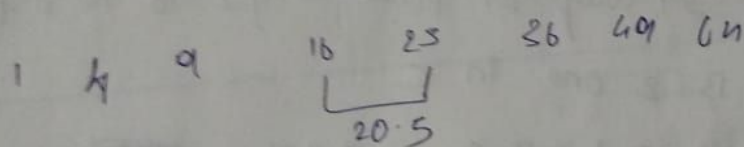 1 4 9 16 25 36 49 64
20.5